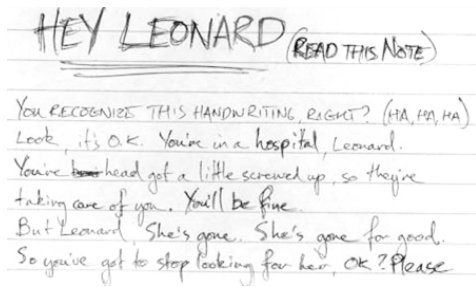 HEY LEONARD (READ THIS NOTE)
YOU RECOGNIZE THIS HANDWRITING, RIGHT? (HA, HA, HA)
Look, it's O.K. You're in a hospital, Leonard.
You've head got a little screwed up, so they're
taking care of you. You'll be fine.
But Leonard, She's gone. She's gone for good.
So you've got to stop looking for her, OK? Please